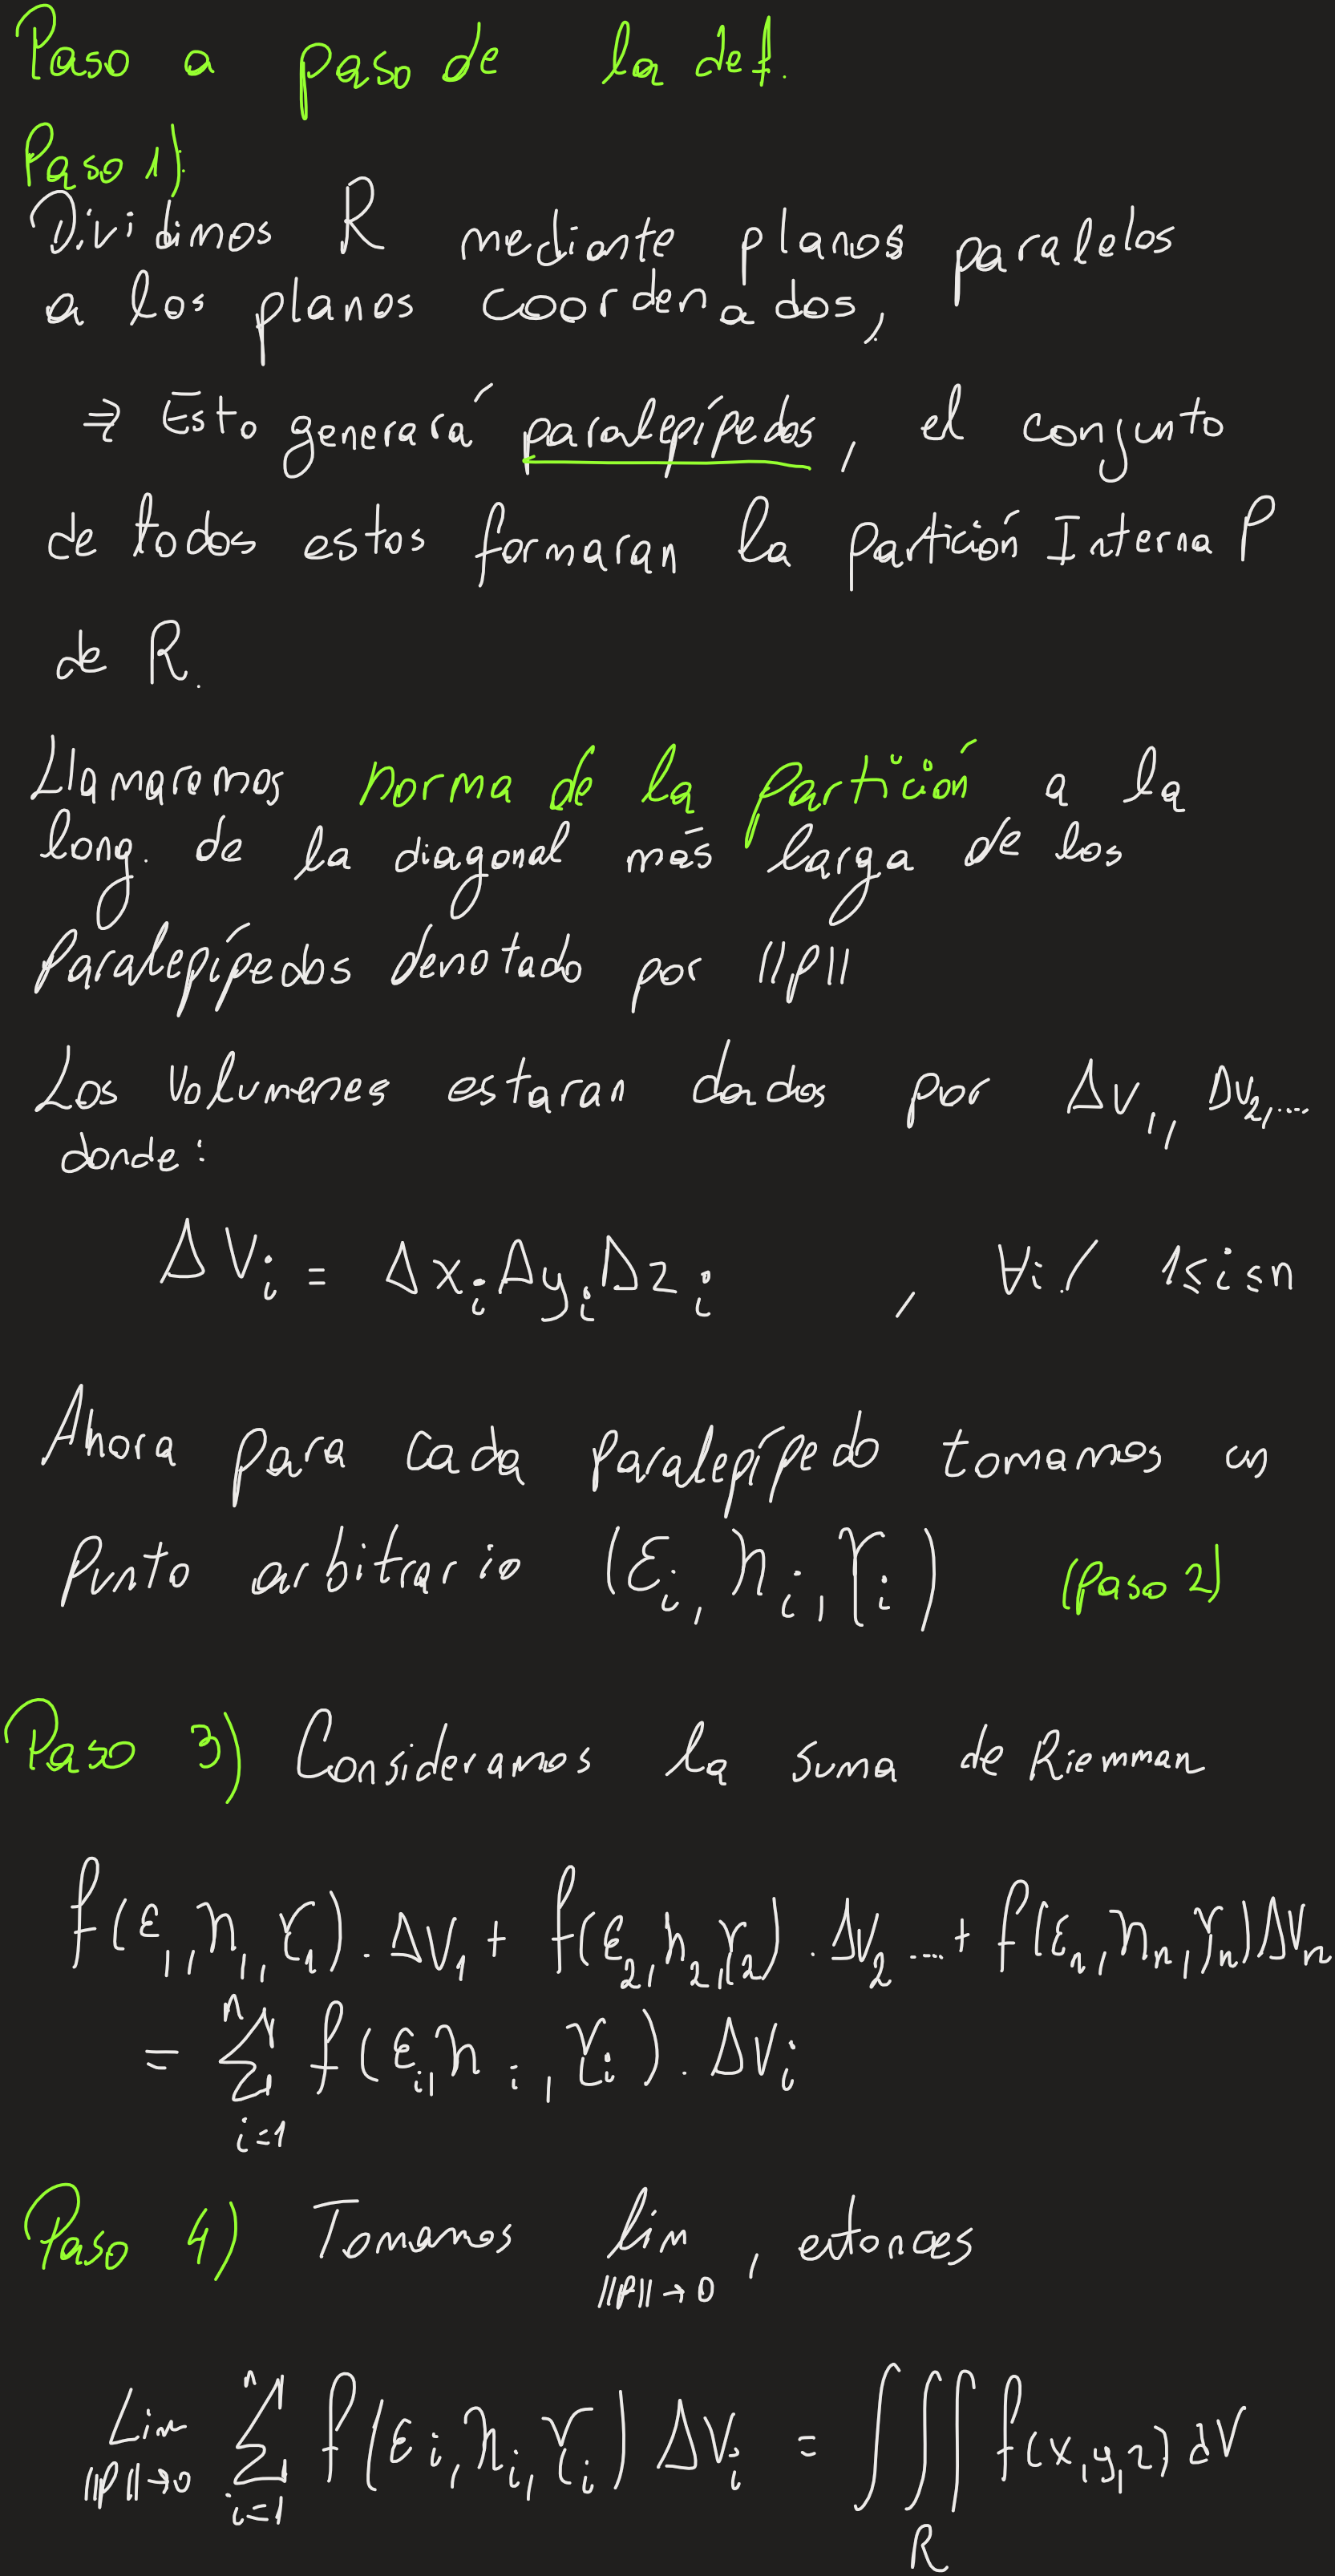 Paso a paso de la def.
Paso 1)
Dividimos R mediante planos paralelos
a los planos coordenados,
⇒ Esto generará paralepípedos, el conjunto
de todos estos formaran la partición Interna P
de R.
Llamaremos norma de la partición a la
long. de la diagonal más larga de los
Paralepípedos denotado por ||P||
Los Volumenes estaran dados por ΔV₁, ΔV₂,....
donde:
ΔVᵢ = Δxᵢ Δyᵢ Δzᵢ , ∀i / 1≤i≤n
Ahora para cada Paralepípedo tomamos un
Punto arbitrario (εᵢ, ηᵢ, γᵢ) (Paso 2)
Paso 3) Consideramos la suma de Riemman
f(ε₁, η₁, γ₁) . ΔV₁ + f(ε₂, η₂, γ₂) . ΔV₂ ....+ f(εₙ, ηₙ, γₙ) ΔVₙ
= ∑ᵢ₌₁ⁿ f(εᵢ, ηᵢ, γᵢ) . ΔVᵢ
Paso 4) Tomamos lim ||P||→0 , entonces
Lim ||P||→0 ∑ᵢ₌₁ⁿ f(εᵢ, ηᵢ, γᵢ) ΔVᵢ = ∭R f(x,y,z) dV